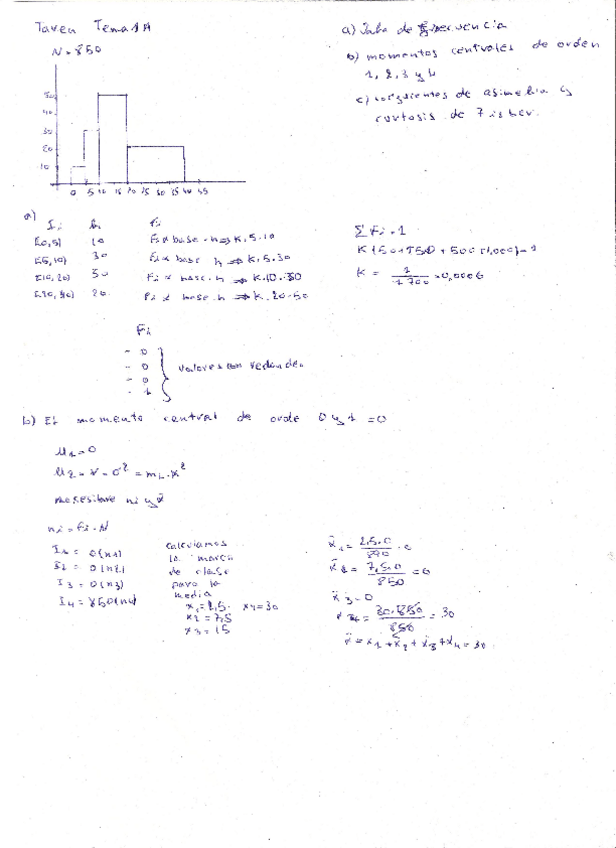 Tarea Tema 1A
N = 850
a) Tabla de frecuencia
b) momentos centrales de orden
1, 2, 3 y 4
c) coeficientes de asimetria y
curtosis de Fisher.
50
40
30
20
10
0 5 10 15 20 25 30 35 40 45
a)
Ii hi Fi
[0,5) 10 Fi α base · h ⇒ K. 5. 10
[5,10) 30 Fi α base h ⇒ K. 5. 30
[10,20) 50 Fi α base. h ⇒ K. 10. 50
20 Fi α base. h ⇒ K. 20. 50
Σ Fi = 1
K = 1/1700 = 0,0006
Fi
- 0
- 0
- 0
- 1
valores con
b) El momento central de orde 0 y 1 = 0
μ1 = 0
ni y x̄
ni = Fi · N
I1 = 0 (n1)
I2 = 0 (n2)
I3 = 0 (n3)
I4 = 850 (n4)
calculamos
la marca
de clase
para la
media
x1 = 2,5 x4 = 30
x2 = 7,5
x3 = 15
x̄2 = 7,5.0/850 = 0
x̄3 = 0
30.850/850 = 30
x̄ = x̄1 + x̄2 + x̄3 + x̄4 = 30